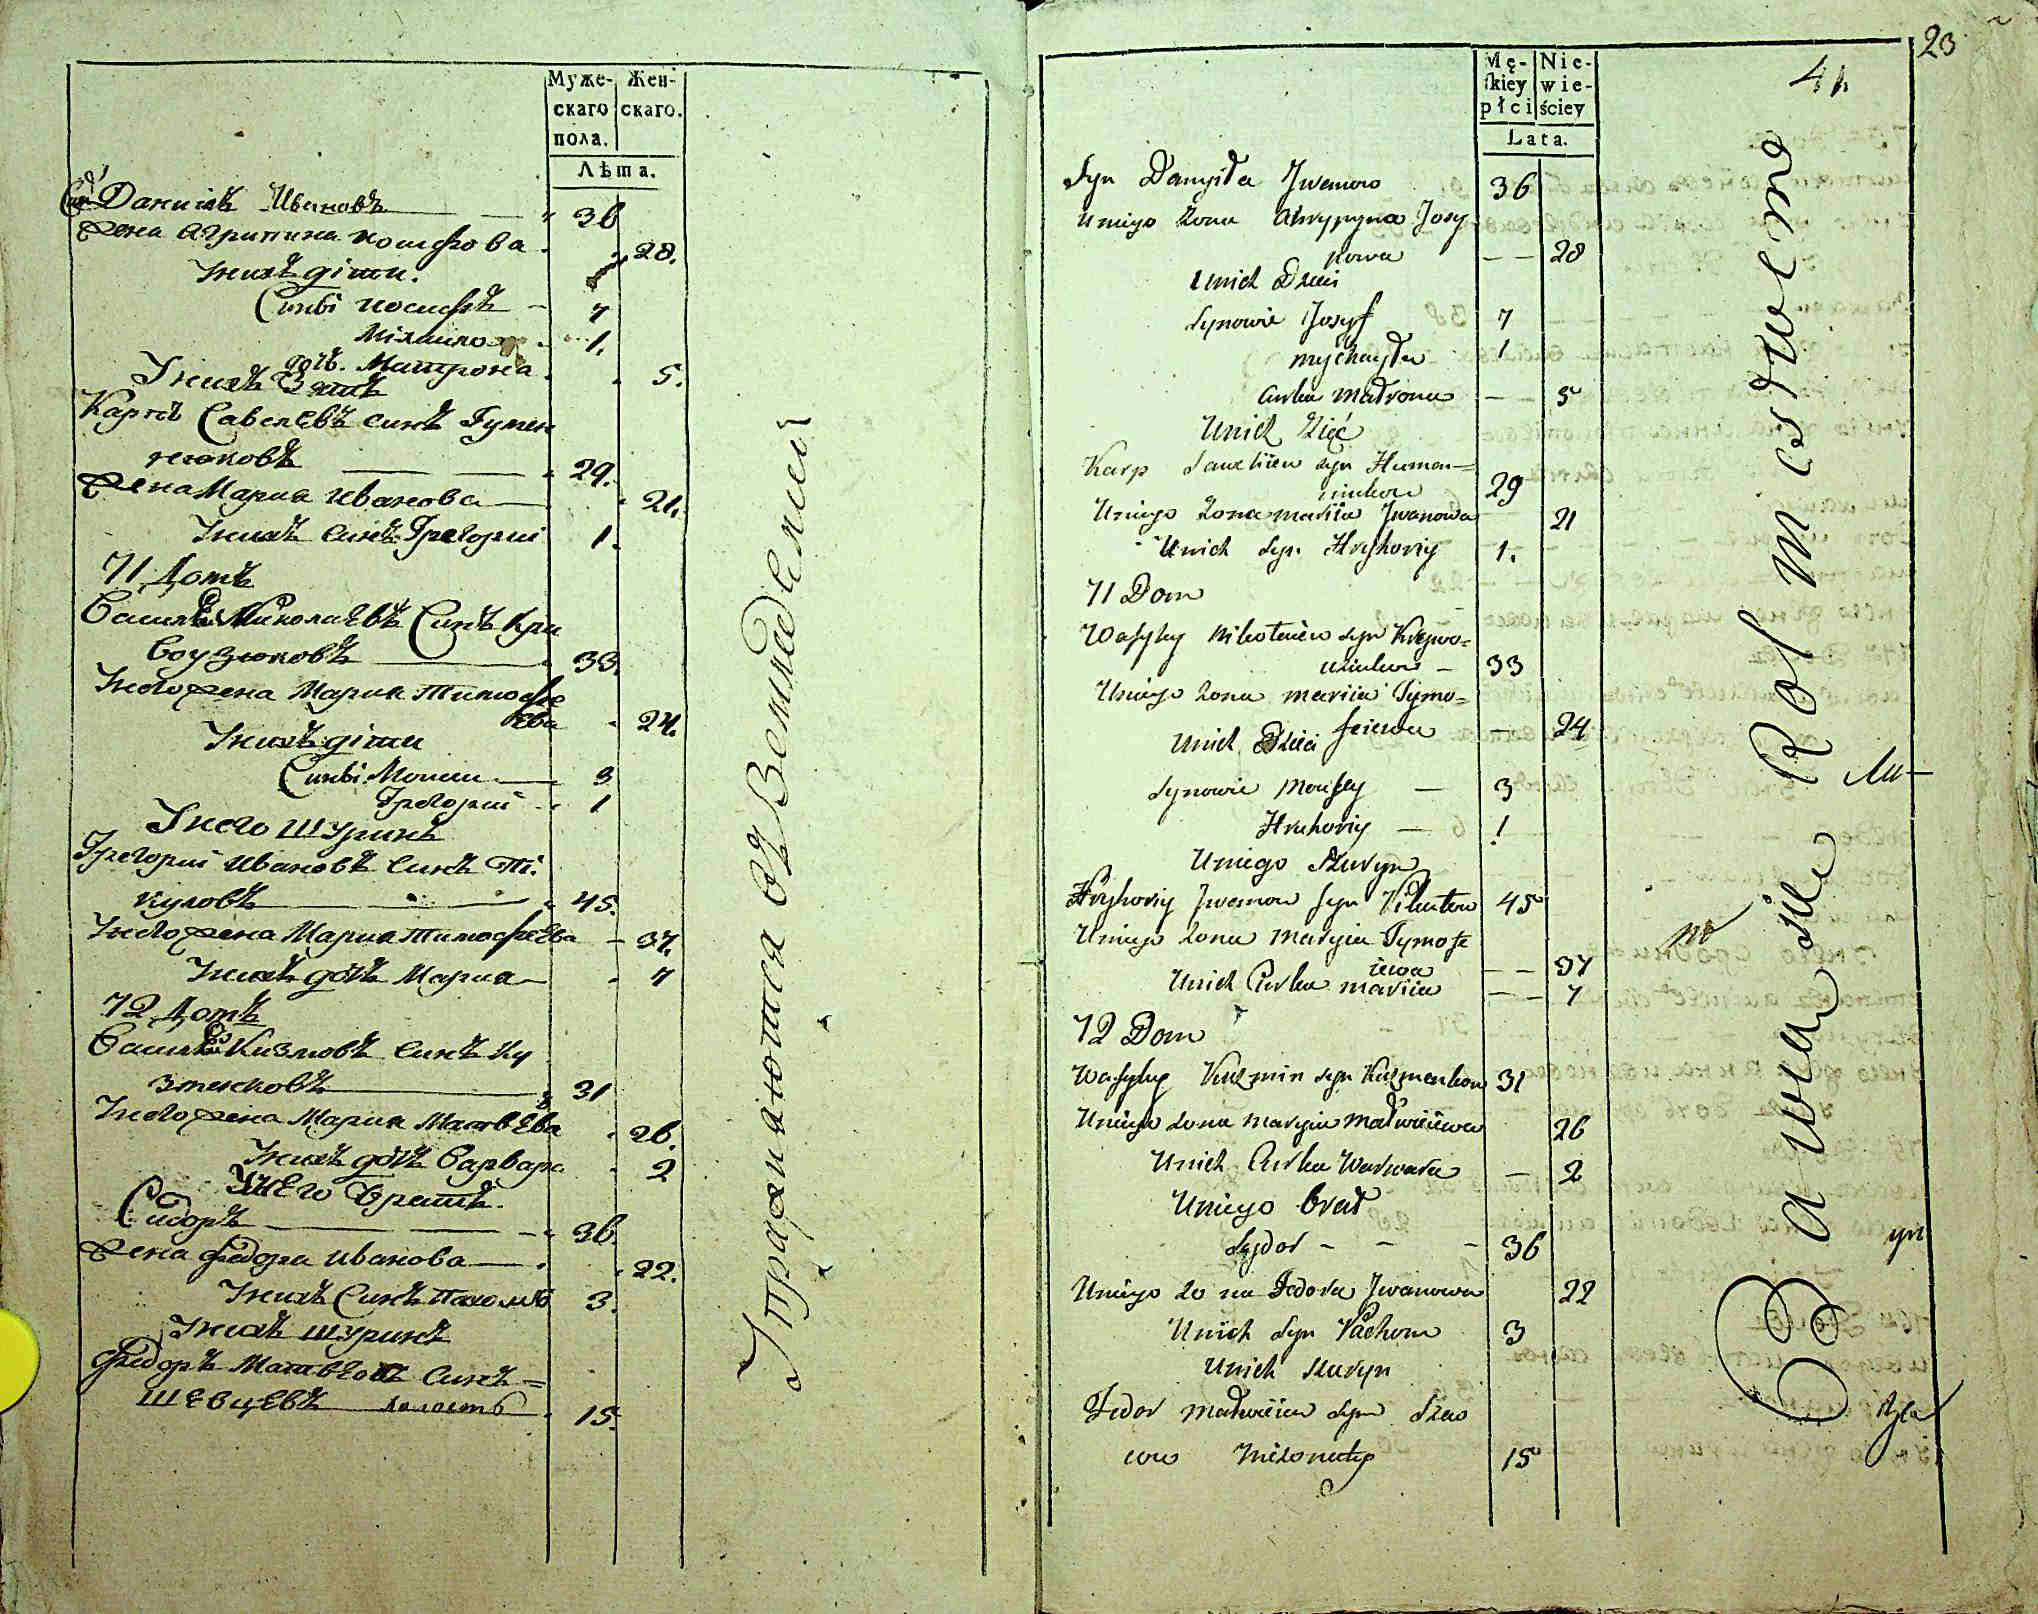 Муже-
скаго
пола.
Жен-
скаго.
Лѣта.
Синъ Даниилъ Ивановъ 36
Жена Агрипина Иосифова 28.
У нихъ діти.
Сини Иосифъ 7
Михаило 1.
доч. Матрона 5.
У нихъ Зять
Карпъ Савелевъ синъ Гумен
нюковъ 29.
Жена Мария Иванова 21.
У нихъ синъ Григорий 1.
71 Домъ
Василь Николаевъ Синъ Кри
воузюковъ 33.
У него жена Мария Тимофе
ева 24.
У нихъ діти
Сини Моисей 3
Григорий 1
У него Шуринъ
Григорий Ивановъ синъ Ти
куловъ 45.
У него жена Мария Тимофеева 37.
У нихъ доч Мария 7
72 Домъ
Василь Кизмовъ синъ Ку
зменковъ 31
У него жена Мария Матвеева 26.
У нихъ доч Варвара 2
У него братъ.
Сидоръ 36.
Жена Федора Иванова 22.
У нихъ Синъ Пахомъ 3.
У нихъ шуринъ
Федоръ Матвеевъ синъ =
Шевцевъ холостъ 15.
Упражняются въ Земледелии
23
Mę-
skiey
płci
Nie-
wie-
ściey
Lata.
Syn Danyiła Jwanow 36
U niego Żona Ahrypyna Josy
powa — — 28
U nich Dzieci
Synowie Josyf 7
Mychayła 1
Curka Matrona — — 5
U nich Zięć
Karp Saweliiew syn Human=
niukow 29
U niego Żona Mariia Jwanowa 21
U nich Syn Hryhoriy 1.
71 Dom
Wasyly Nikołaiew syn Krzywo=
uziukow — 33
U niego Żona Mariia Tymo=
feiewa — 24
U nich Dzieci
Synowie Mousey — 3
Hryhoriy — 1
U niego Szuryn
Hryhoriy Jwanow syn Tikułow 45
U niego Żona Maryia Tymofe
iewa — — 37
U nich Curka Mariia — — 7
72 Dom
Wasyly Kuzmin syn Kuzmenkow 31
U niego żona Maryia Matwieiewa 26
U nich Curka Warwara — 2
U niego brat
Sydor — — — 36
U niego żona Fedora Jwanowa 22
U nich Syn Pachom 3
U nich szuryn
Fedor Matwieiew Syn Szew
cow Nieżonaty 15
Bawią się Rolnictwem